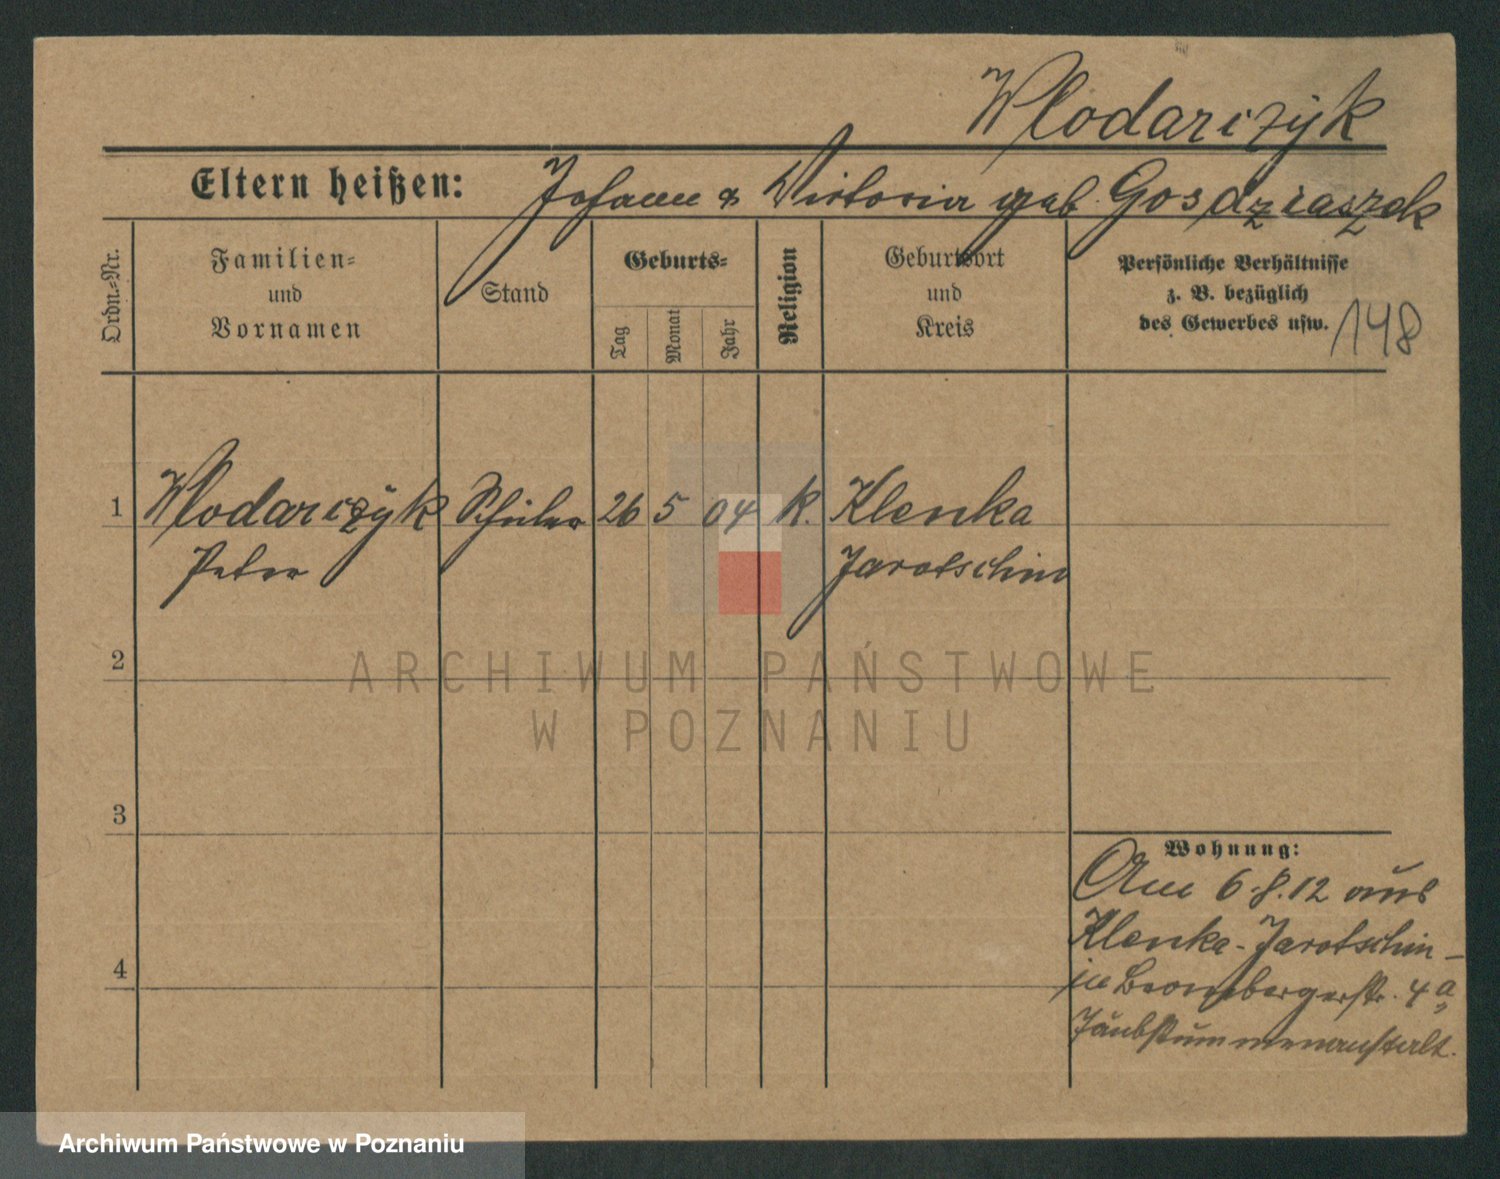 Wlodarczyk
Eltern heißen: Johann & Victoria geb. Gosdziaszek
Ordn.-Nr.
Familien-
und
Vornamen
Stand
Geburts-
Tag
Monat
Jahr
Religion
Geburtsort
und
Kreis
Persönliche Verhältnisse
z. B. bezüglich
des Gewerbes usw.
148
1 Wlodarczyk Schüler 26 5 04 k. Klenka
Peter Jarotschin
2
3
4
Wohnung:
Am 6.8.12 aus
Klenka-Jarotschin-
in Brombergerstr. 4a
Taubstummenanstalt.
ARCHIWUM PAŃSTWOWE
W POZNANIU
Archiwum Państwowe w Poznaniu